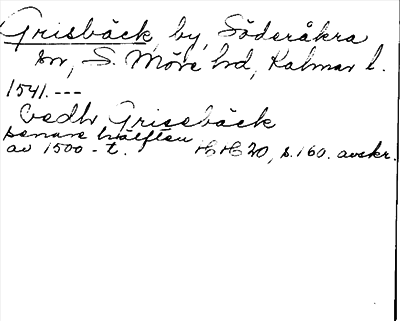 Grisbäck, by, Söderåkra
sn, S. Möre hd, Kalmar l.
1541.---
Vedh Grissbäck
senare hälften
av 1500-t. HH 20, s. 160. avskr.